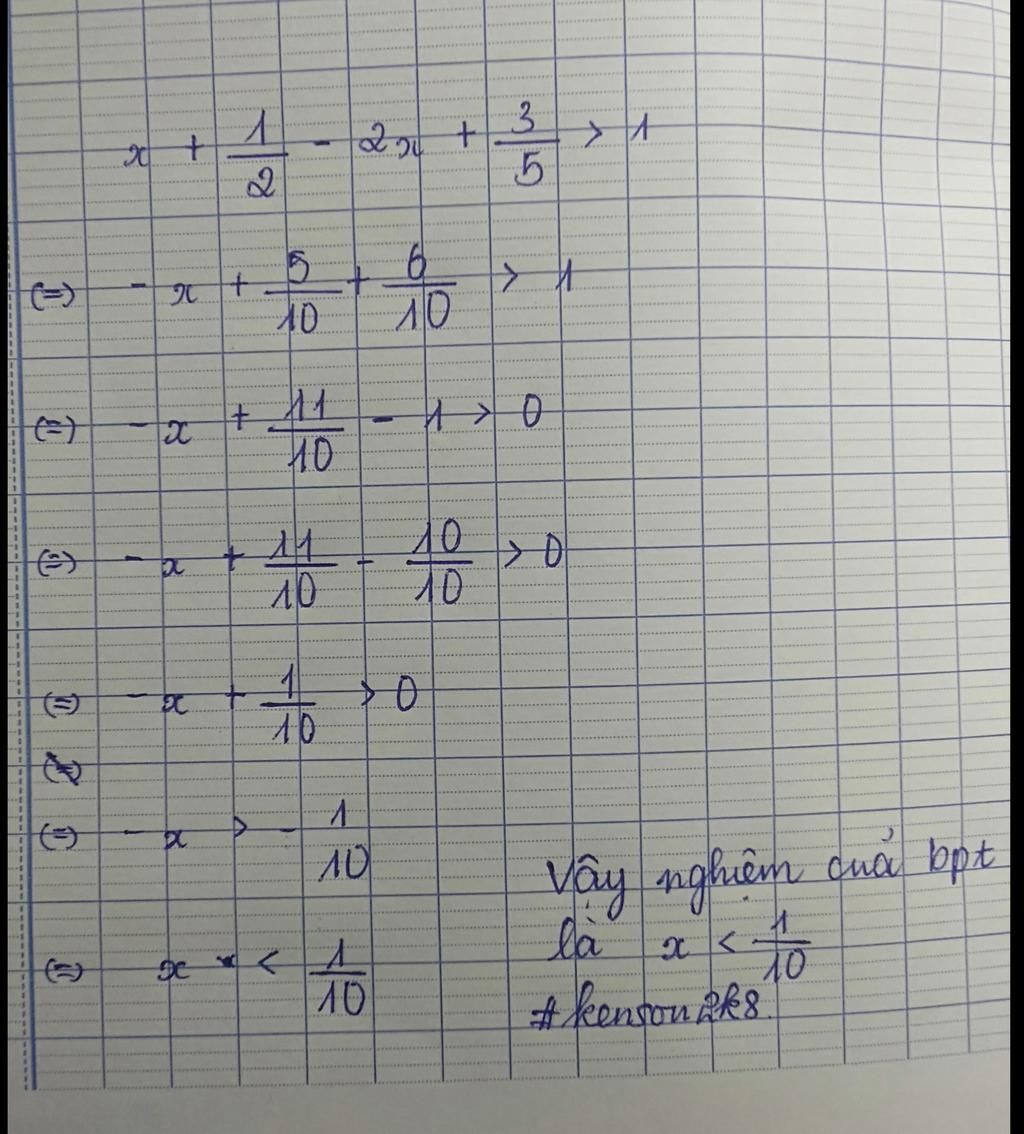 x + 1/2 - 2x + 3/5 > 1
(=) - x + 5/10 + 6/10 > 1
(=) - x + 11/10 - 1 > 0
(=) - x + 11/10 - 10/10 > 0
(=) - x + 1/10 > 0
(=) - x > - 1/10
(=) x < 1/10
Vậy nghiệm quả bpt
là x < 1/10
#kenson2k8.